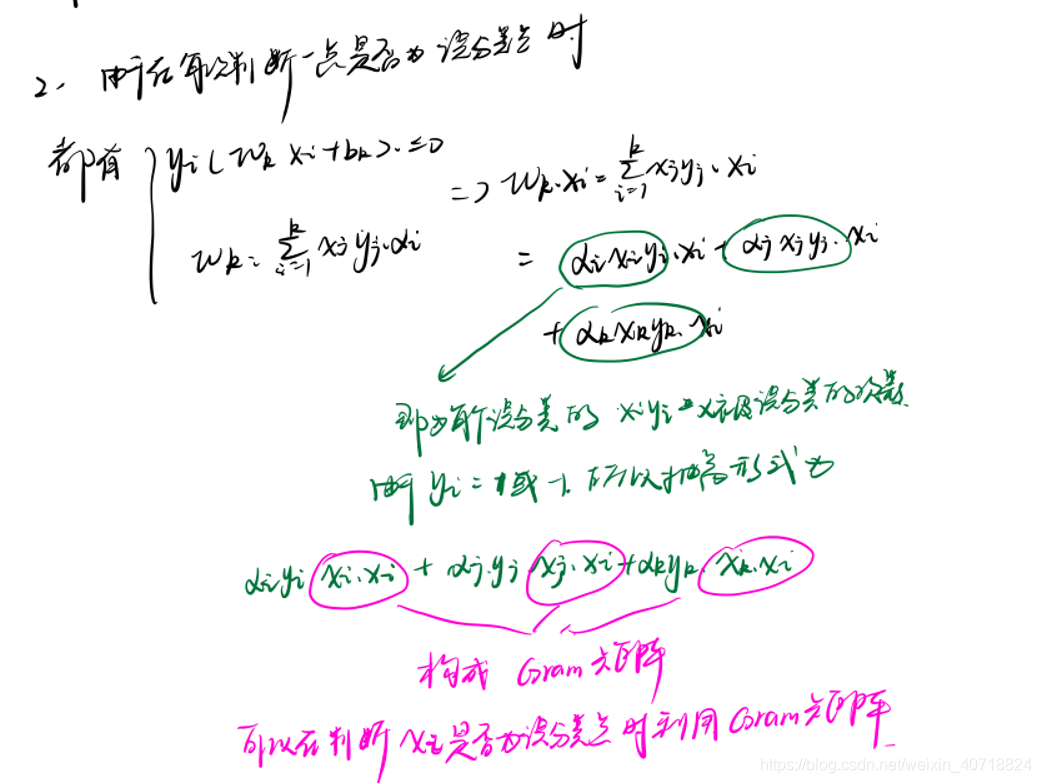 2. 由于在每次判断一点是否为误分类点时
都有 { yi ( wk xi + bk ) ≤0
wk = ∑_{i=1}^{k} xj yj·αi
=> wk·xi = ∑_{i=1}^{k} xj yj·xi
= αi xi yi·xi + αj xj yj·xi
+ αk xk yk·xi
即为每个误分类的 xi yi 被误分类的次数
由于 yi = 1或-1 所以 形式为
αi yi xi·xi + αj·yj xj·xi + αk yk·xk·xi
构成 Gram 矩阵
可以在判断 xi 是否为误分类点时利用 Gram 矩阵
https://blog.csdn.net/weixin_40718824